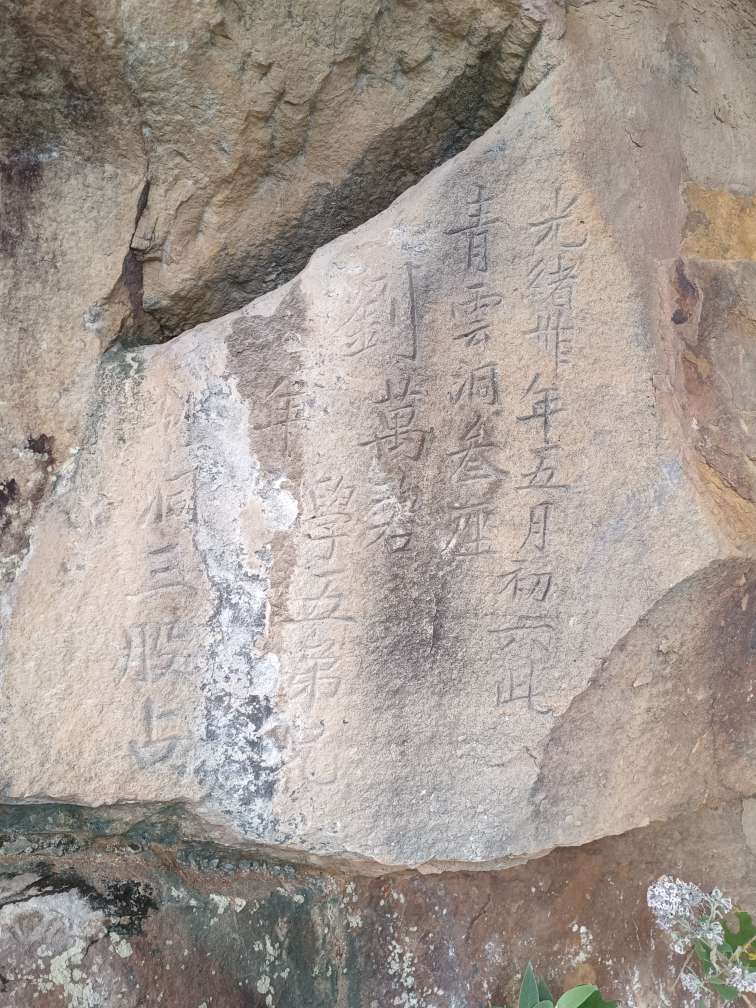 光緒卅年五月初六此
青雲洞叁座
劉萬
年學五弟兄
洞三股占